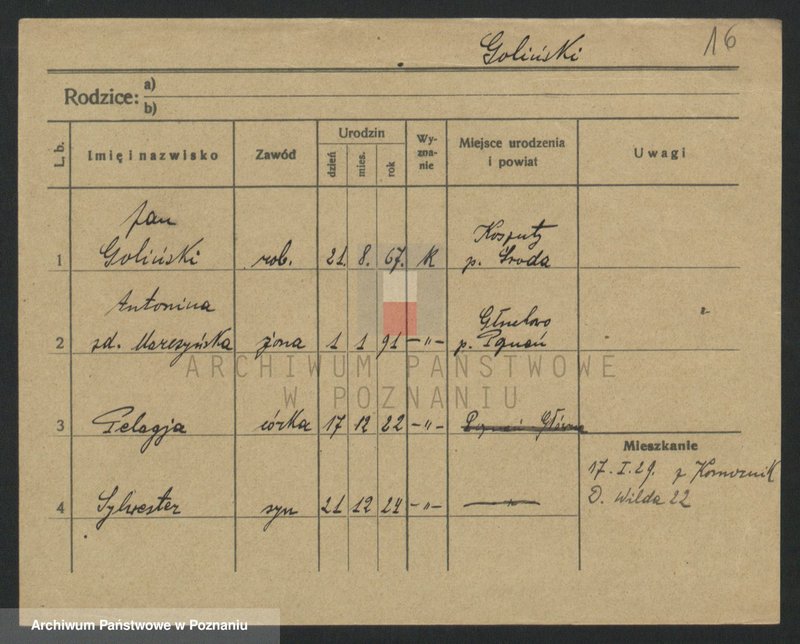 16
Goliński
Rodzice: a)
b)
L. b. Imię i nazwisko Zawód Urodzin dzień mies. rok Wy-zna-nie Miejsce urodzenia i powiat Uwagi
Jan
Kosputy
1 Goliński rob. 21. 8. 67. K p. Środa
Antonina
2 zd. Marszyńska żona 1 1 91 —„— p. Poznań
3 Pelagja córka 17 12 22 —„— Poznań Główna
Mieszkanie
17. I. 29. z Komornik
D. Wilda 22
4 Sylwester syn 21 12 24 —„— —„—
ARCHIWUM PAŃSTWOWE
W POZNANIU
Archiwum Państwowe w Poznaniu